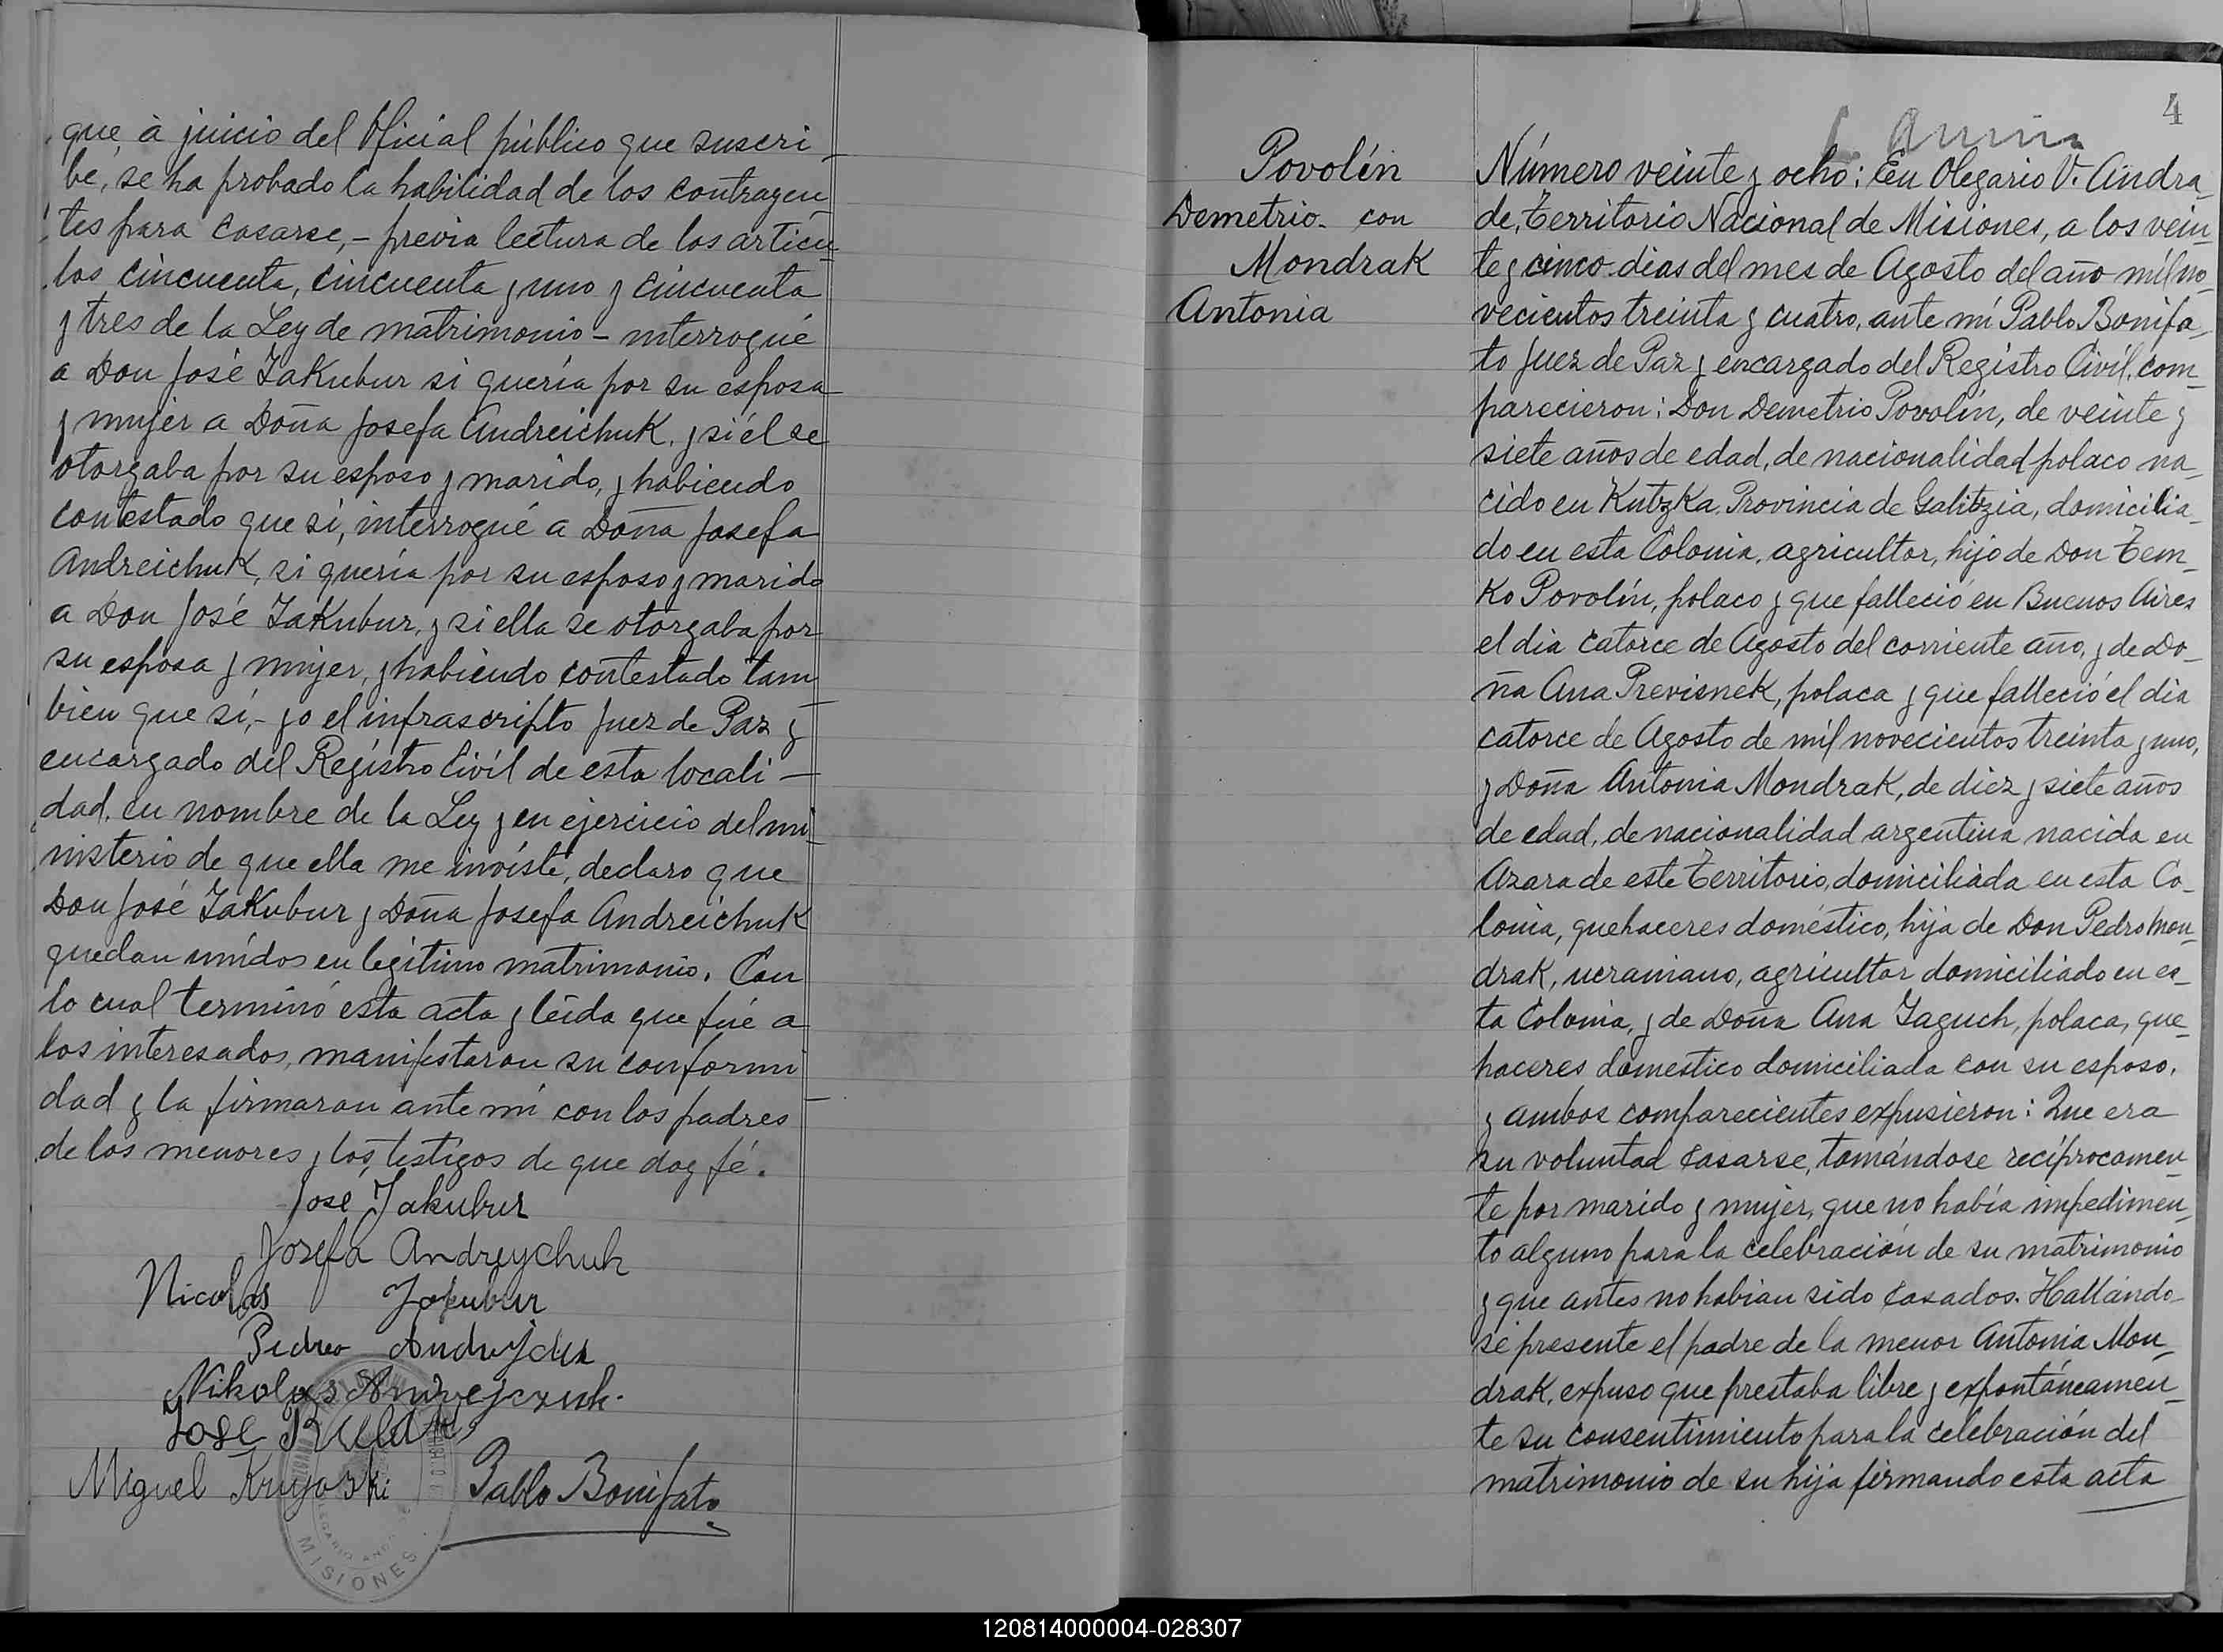 que, à juicio del Oficial público que suscri-
be, se ha probado la habilidad de los contrayen-
tes para casarse,- previa lectura de los artícu-
los cincuenta, cincuenta y uno y cincuenta
y tres de la Ley de matrimonio - interrogué
a Don José Jakubur si quería por su esposa
y mujer a Doña Josefa Andreichuk, y si él se
otorgaba por su esposo y marido, y habiendo
contestado que sí, interrogué a Doña Josefa
Andreichuk, si quería por su esposo y marido
a Don José Jakubur, y si ella se otorgaba por
su esposa y mujer, y habiendo contestado tam
bien que sí,- yo el infrascripto Juez de Paz y
encargado del Registro Civil de esta locali-
dad, en nombre de la Ley y en ejercicio del mi-
nisterio de que ella me inviste, declaro que
Don José Jakubur y Doña Josefa Andreichuk
quedan unídos en legítimo matrimonio. Con
lo cual terminó esta acta y leída que fué a
los interesados, manifestaron su conformi
dad y la firmaron ante mí con los padres
de los menores y los testigos de que doy fé.
José Jakubur
Josefa Andreychuk
Nicolas Jakubur
Pedro
Nikolas Andrejczuk.
Jose
Miguel Pablo Bonifato
MISIONES
4
Povolín
Demetrio. con
Mondrak
Antonia
Número veinte y ocho: En Olegario V. Andra-
de, Territorio Nacional de Misiones, a los vein-
te y cinco dias del mes de Agosto del año mil no-
vecientos treinta y cuatro, ante mí Pablo Bonifa-
to Juez de Paz y encargado del Registro Civil, com-
parecieron: Don Demetrio Povolín, de veinte y
siete años de edad, de nacionalidad polaco na-
cido en Kutzka. Provincia de Galitzia, domicilia-
do en esta Colonia, agricultor, hijo de Don Tem-
ko Povolín, polaco y que falleció en Buenos Aires
el dia catorce de Agosto del corriente año, y de Do-
ña Ana Previsnek, polaca y que falleció el dia
catorce de Agosto de mil novecientos treinta y uno,
y Doña Antonia Mondrak, de diez y siete años
de edad, de nacionalidad argentina nacida en
Azara de este Territorio, domiciliada en esta Co-
lonia, quehaceres doméstico, hija de Don Pedro Mon-
drak, ucraniano, agricultor domiciliado en es-
ta Colonia, y de Doña Ana Jaguch, polaca, que-
haceres domestico domiciliada con su esposo.
y ambos comparecientes expusieron: Que era
su voluntad casarse, tomándose recíprocamen-
te por marido y mujer, que no había impedimen-
to alguno para la celebración de su matrimonio
y que antes no habian sido casados. Hallándo-
se presente el padre de la menor Antonia Mon-
drak, expuso que prestaba libre y expontáneamen-
te su consentimiento para la celebración del
matrimonio de su hija firmando esta acta
120814000004-028307